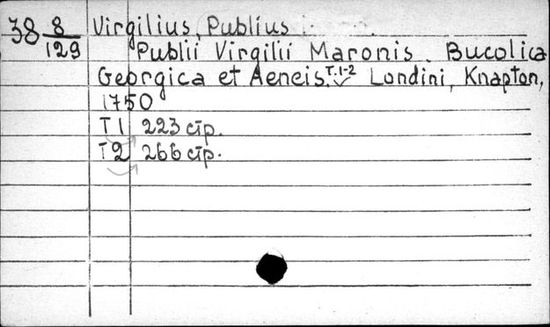 38 8/129 Virgilius, Publius
Publii Virgilii Maronis. Bucolica
Georgica et Aeneis. T.1-2 Londini, Knapton,
1750
T1 223 стр.
T2 266 стр.